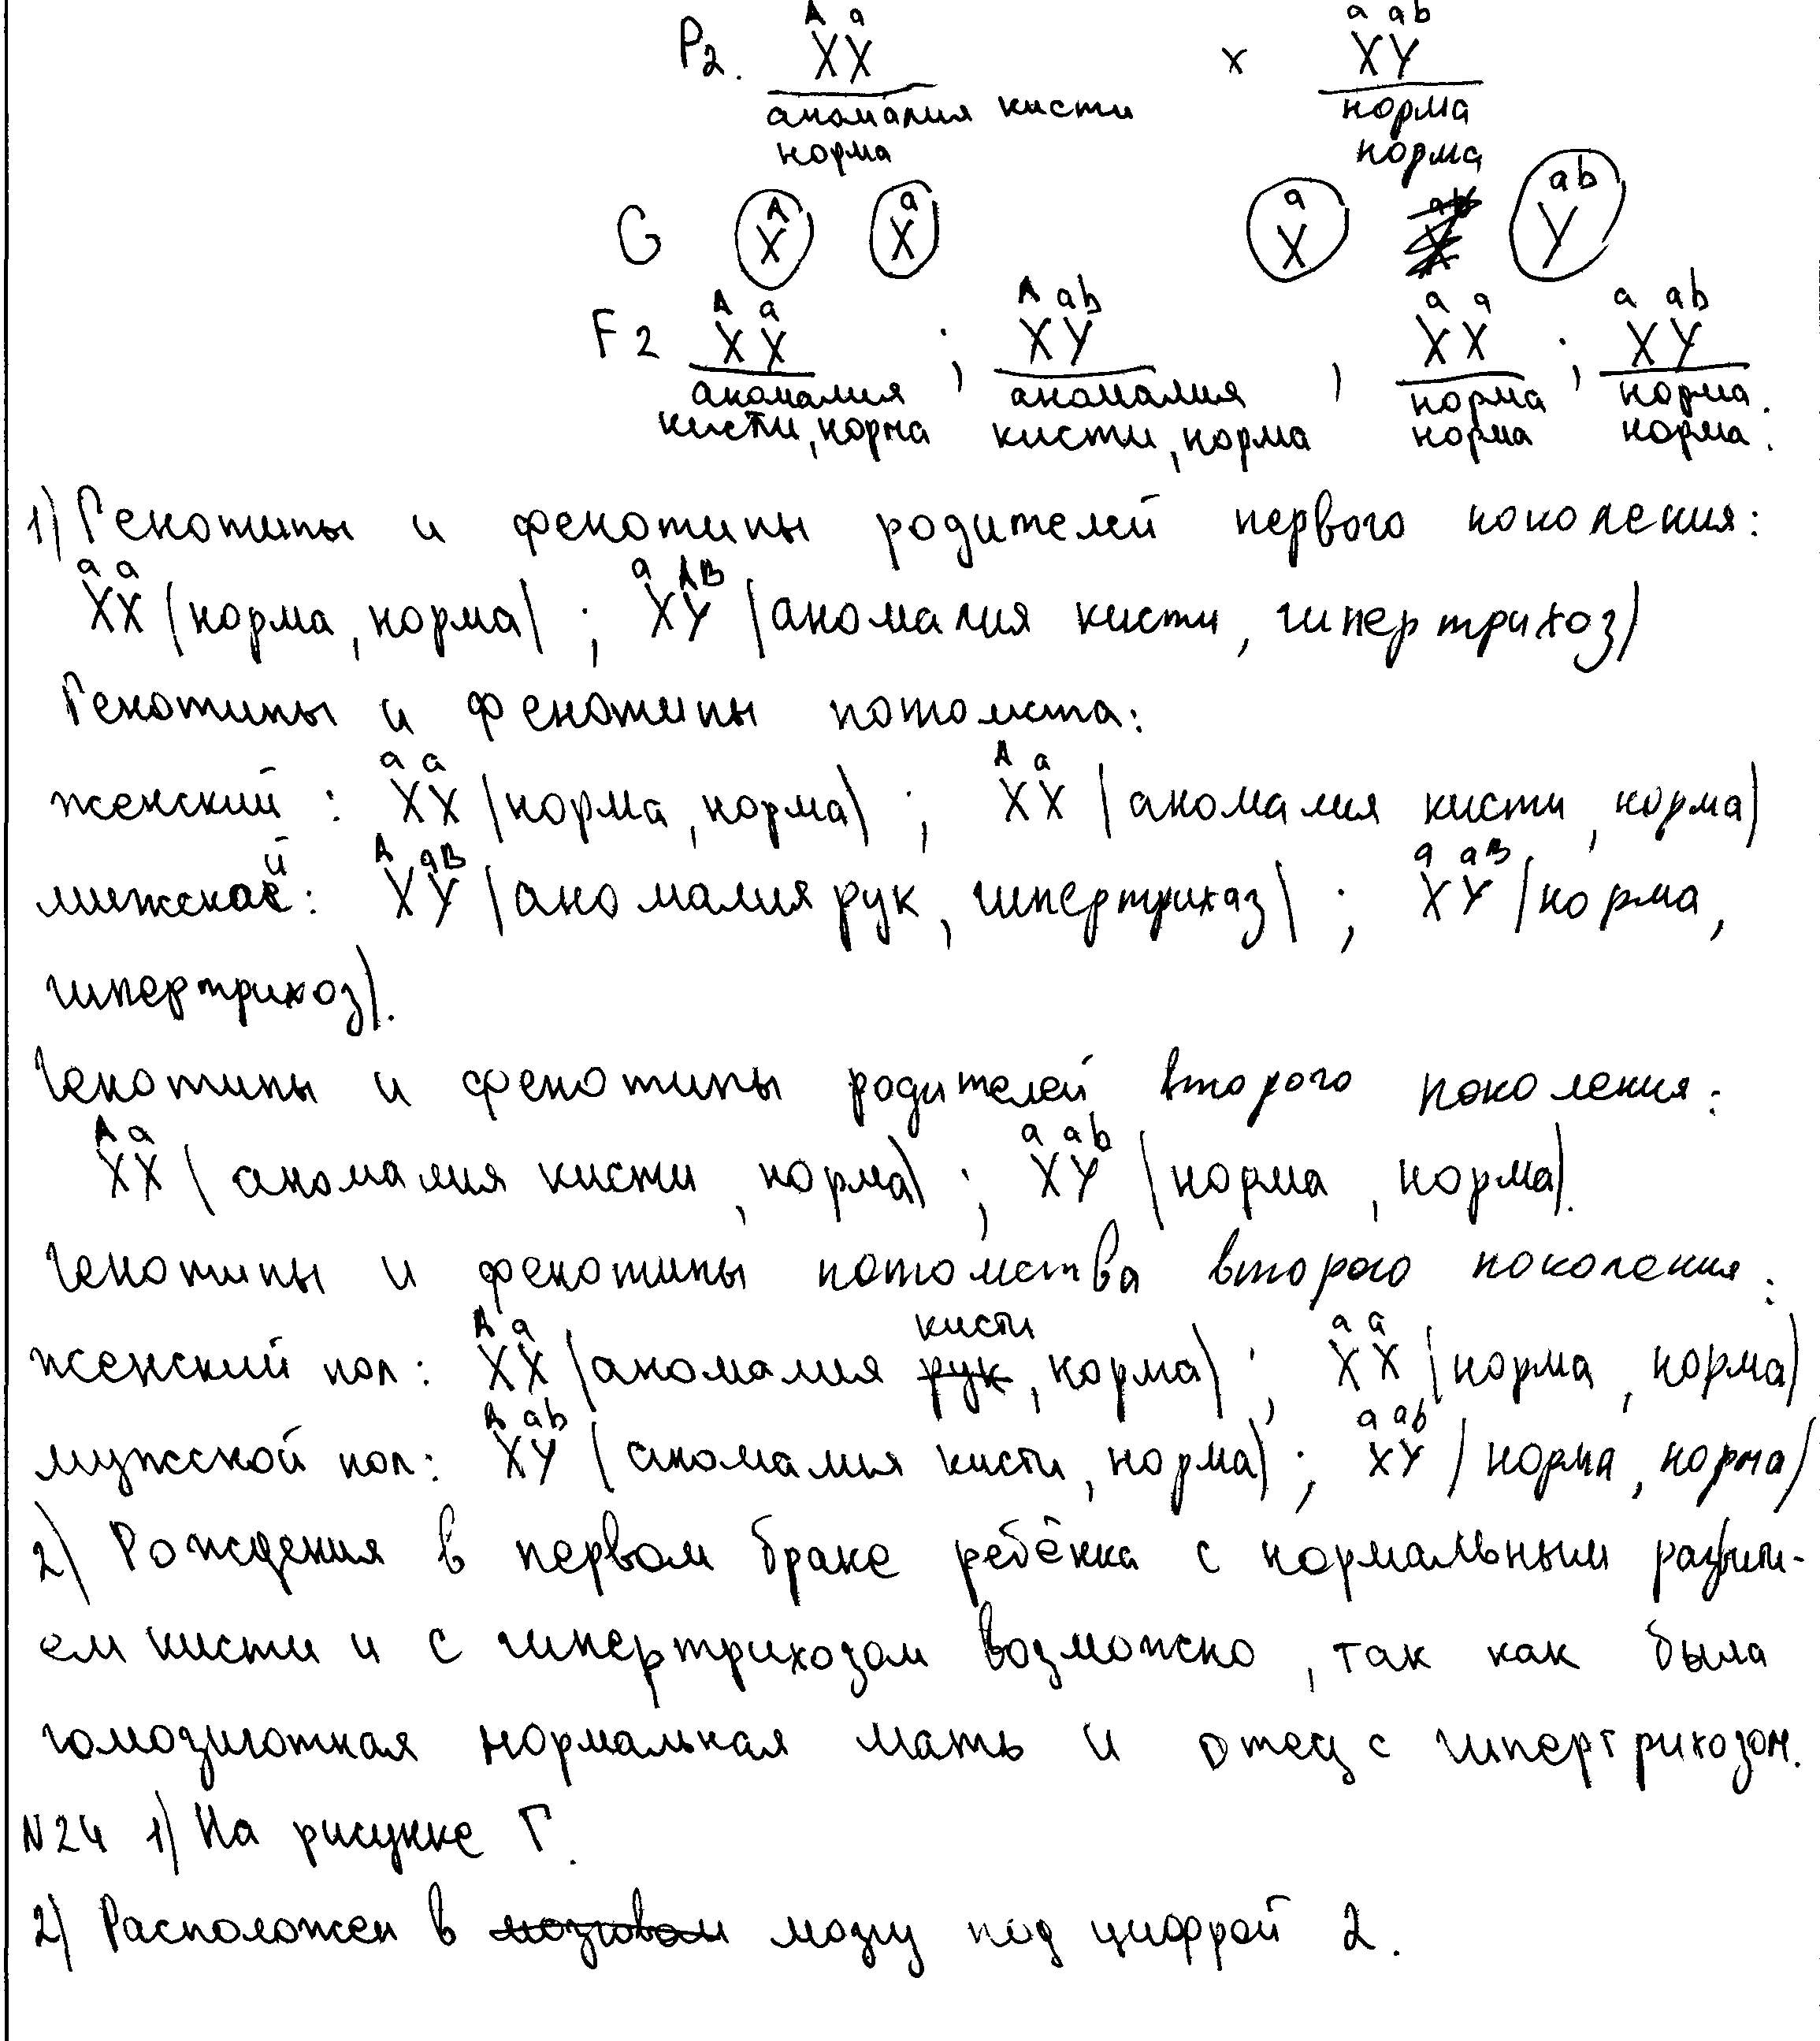 A a a ab
P2. XX x XY
аномалия кисти норма
норма норма
A a a ab
G X X X Y
A a A ab a a a ab
F2 XX ; XY ; XX ; XY
аномалия аномалия норма норма.
кисти, норма кисти, норма норма норма.
1) Генотипы и фенотипы родителей первого поколения:
a a a AB
XX (норма, норма) ; XY (аномалия кисти, гипертрихоз)
Генотипы и фенотипы потомста:
a a A a
женский : XX (норма, норма) ; XX (аномалия кисти, норма)
A aB a aB
мижской: XY (аномалия рук, гипертрихаз) ; XY (норма,
гипертрихоз).
Генотипы и фенотипы родителей второго поколения:
A a a ab
XX (аномалия кисти, норма) ; XY (норма, норма).
Генотипы и фенотипы потомства второго поколения:
A a кисти a a
женский пол: XX (аномалия рук, норма) ; XX (норма, норма)
A ab a ab
мужской пол: XY (аномалия кисти, норма) ; XY (норма, норма)
2) Рождения в первом браке ребёнка с нормальным развити-
ем кисти и с гипертрихозом возможно, так как была
гомозиготная нормальная мать и отец с гипертрихозом.
N24 1) На рисунке Г.
2) Расположен в мозговом мозгу под цифрой 2.